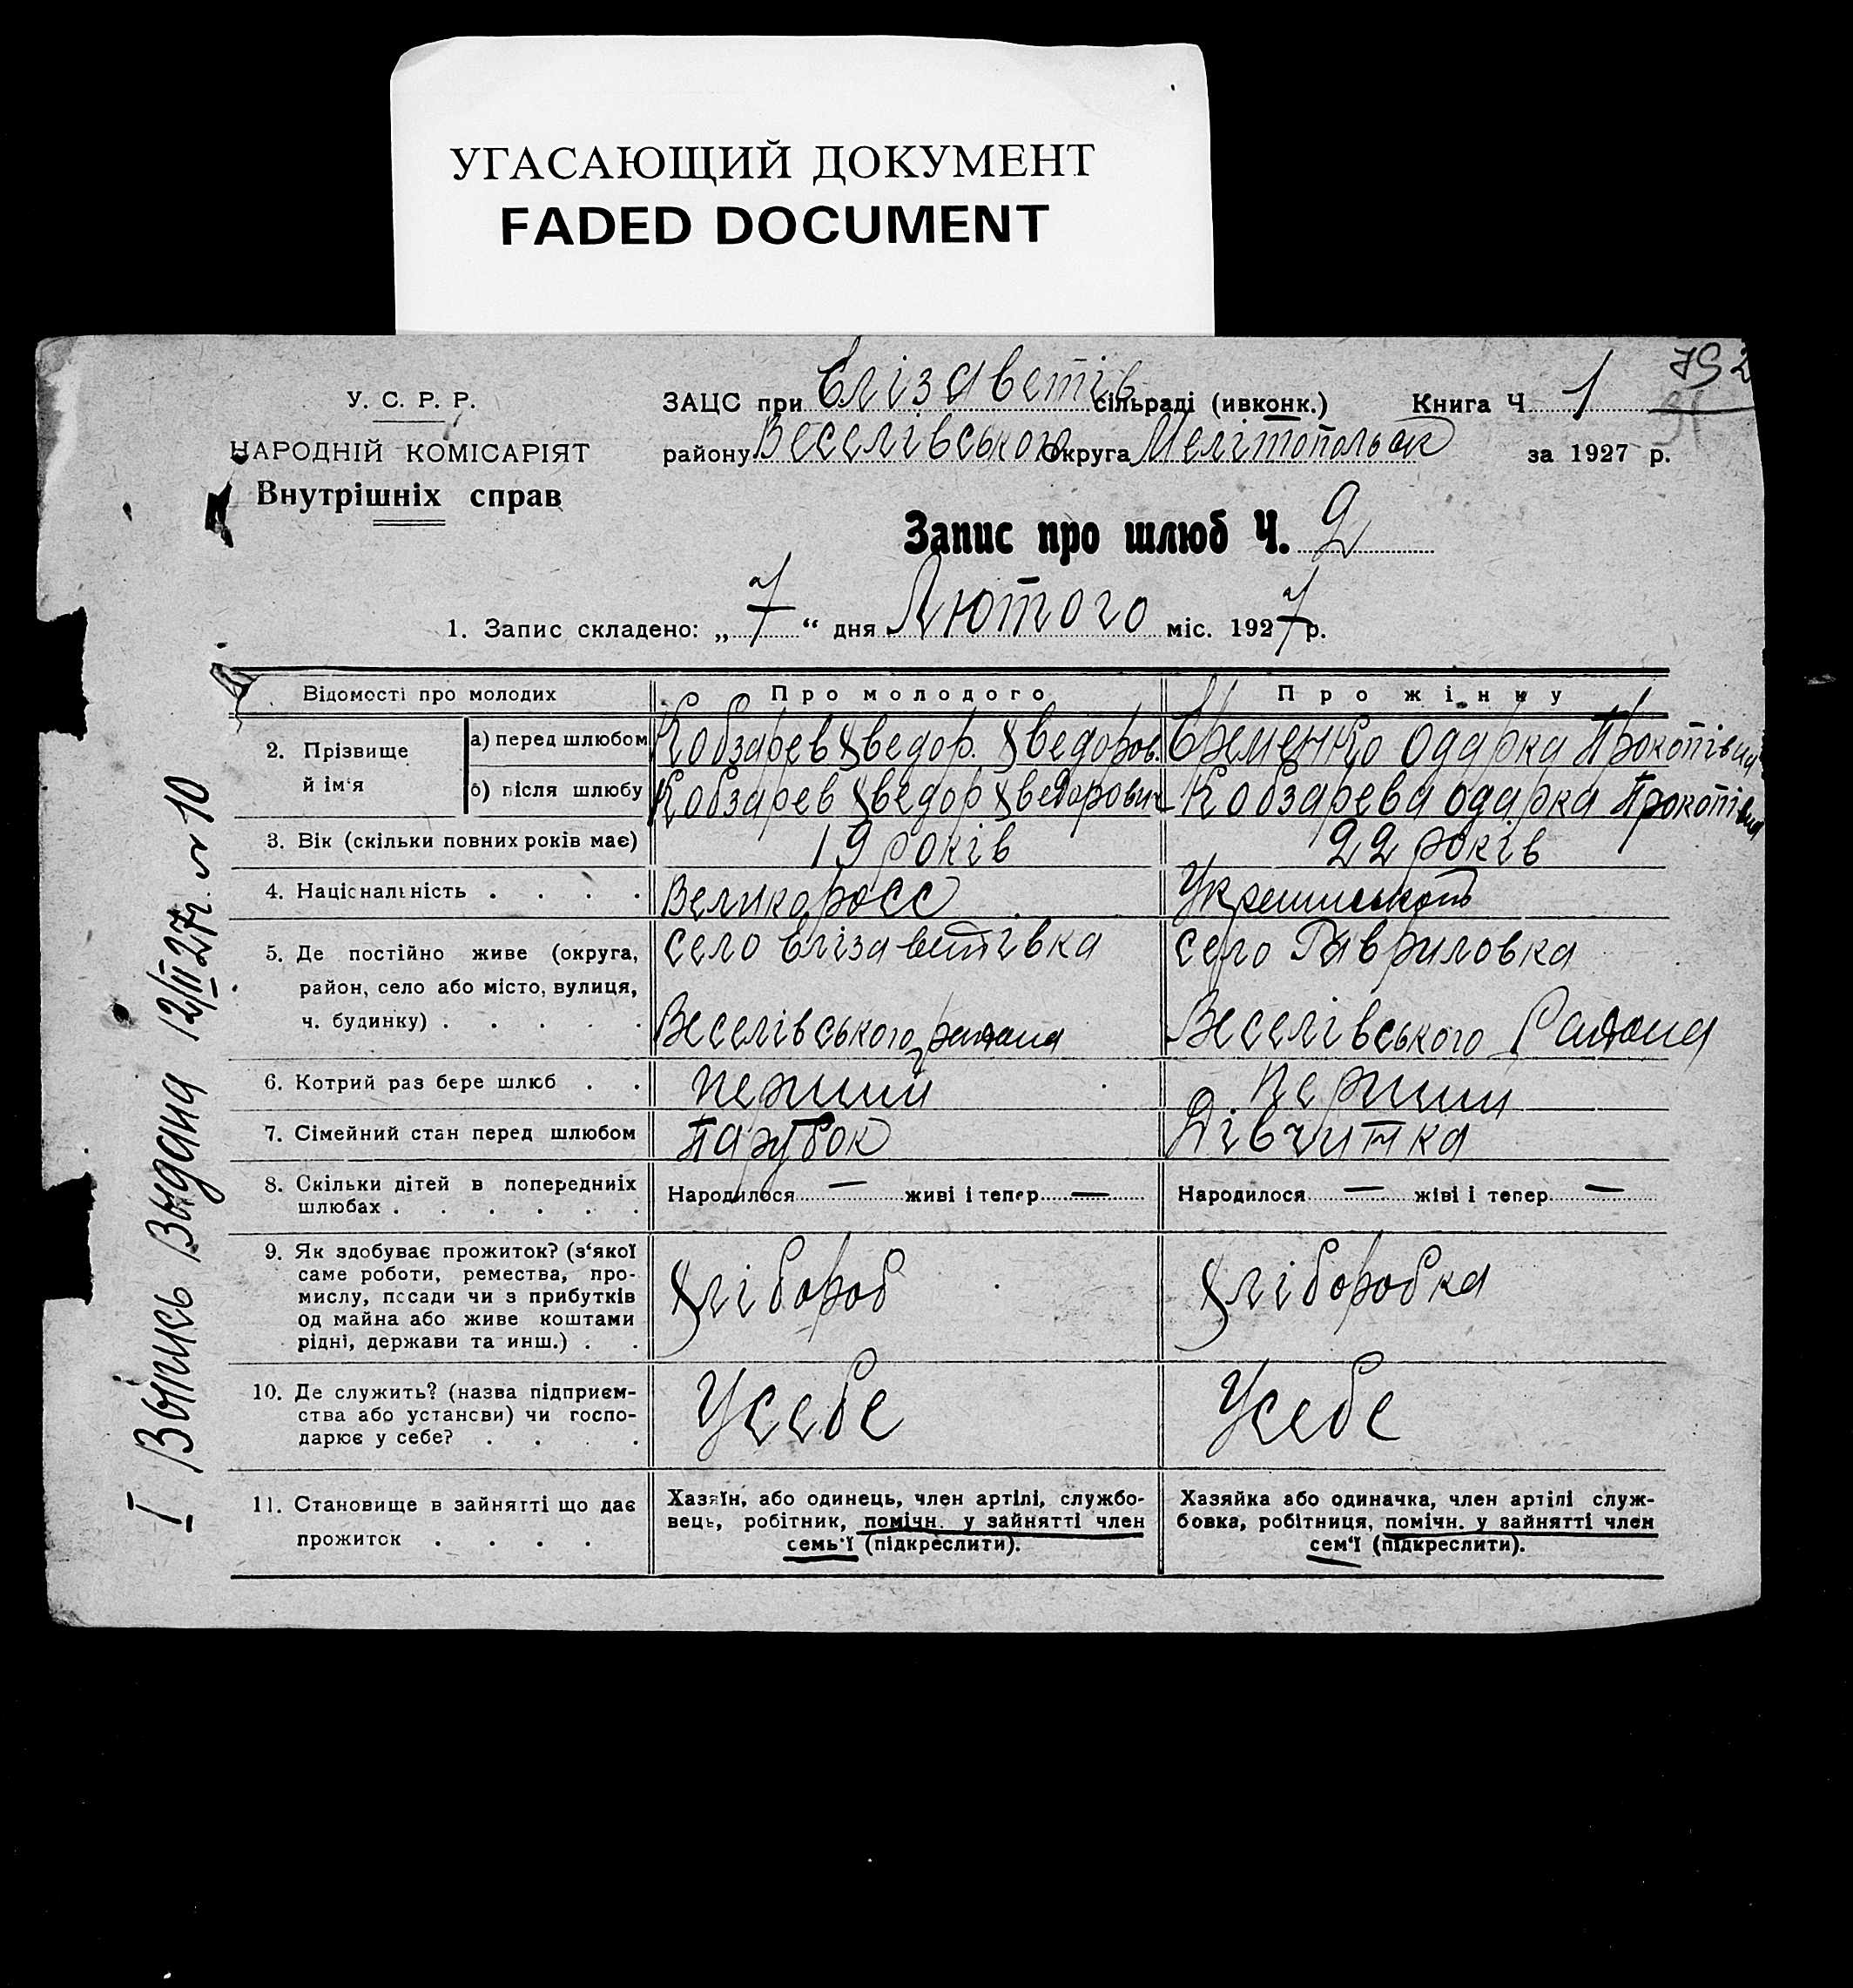 УГАСАЮЩИЙ ДОКУМЕНТ
FADED DOCUMENT
792
У. С. Р. Р.
НАРОДНІЙ КОМІСАРІЯТ
Внутрішніх справ
ЗАЦС при Єлізаветів сільраді (ивконк.) Книга Ч. 1
району Веселівського Округа Мелітопольск за 1927 р.
Запис про шлюб Ч. 2
1. Запис складено: „7“ дня Лютого міс. 1927 р.
Відомості про молодих Про молодого Про жінку
2. Прізвище й ім'я а) перед шлюбом Кобзарев Хведор. Хведоров. Єременко Одарка Прокопівна
б) після шлюбу Кобзарев Хведор Хведорович Кобзарева Одарка Прокопівна
3. Вік (скільки повних років має) 19 років 22 років
4. Національність . . . . Великоросс
5. Де постійно живе (округа, село Єлізаветівка село Гавриловка
район, село або місто, вулиця,
ч. будинку) . . . . . Веселівського района Веселівського Района
6. Котрий раз бере шлюб . . перший перший
7. Сімейний стан перед шлюбом Парубок Дівчинка
8. Скільки дітей в попередниіх Народилося — живі і тепер — Народилося — жіві і тепер —
шлюбах . . . . . .
9. Як здобуває прожиток? (з'якої
саме роботи, ремества, про-
мислу, посади чи з прибутків Хлібороб Хліборобка
од майна або живе коштами
рідні, держави та инш.) . .
10. Де служить? (назва підприєм-
ства або установи) чи госпо- Усебе Усебе
дарює у себе? . . . .
11. Становище в зайнятті що дає Хазяїн, або одинець, член артілі, службо- Хазяйка або одиначка, член артілі служ-
прожиток . . . . вець, робітник, помічн. у зайнятті член бовка, робітниця, помічн. у зайнятті член
семь'ї (підкреслити). сем'ї (підкреслити).
I Выпись Выдана 12/II 27г. № 10